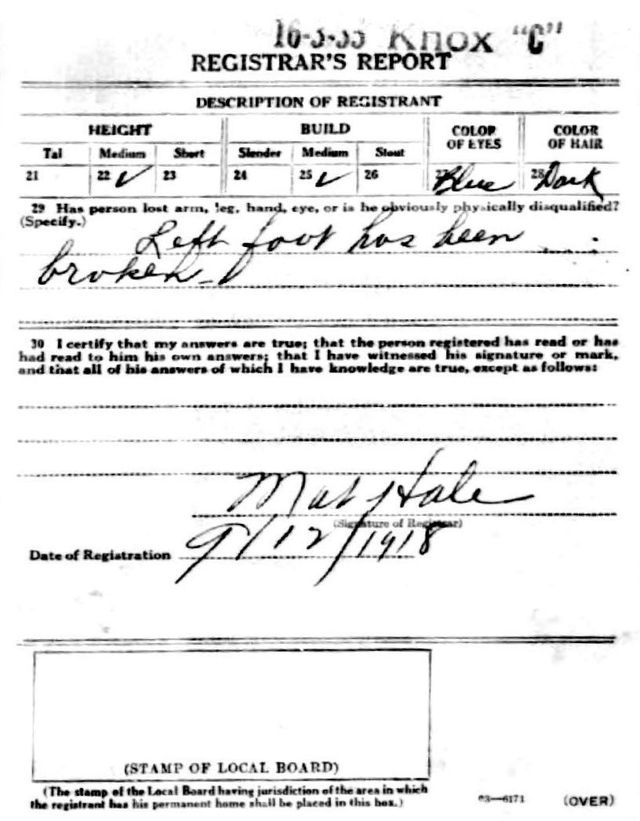 16-3-35 Knox "C"
REGISTRAR'S REPORT
DESCRIPTION OF REGISTRANT
HEIGHT BUILD COLOR OF EYES COLOR OF HAIR
Tall Medium Short Slender Medium Stout
21 22 ✓ 23 24 25 ✓ 26 27 Blue 28 Dark
29 Has person lost arm, leg, hand, eye, or is he obviously physically disqualified?
(Specify.)
Left foot has been
broken
30 I certify that my answers are true; that the person registered has read or has
had read to him his own answers; that I have witnessed his signature or mark,
and that all of his answers of which I have knowledge are true, except as follows:
Mat Hale
(Signature of Registrar)
Date of Registration 9/12/1918
(STAMP OF LOCAL BOARD)
(The stamp of the Local Board having jurisdiction of the area in which
the registrant has his permanent home shall be placed in this box.)
03—6171 (OVER)